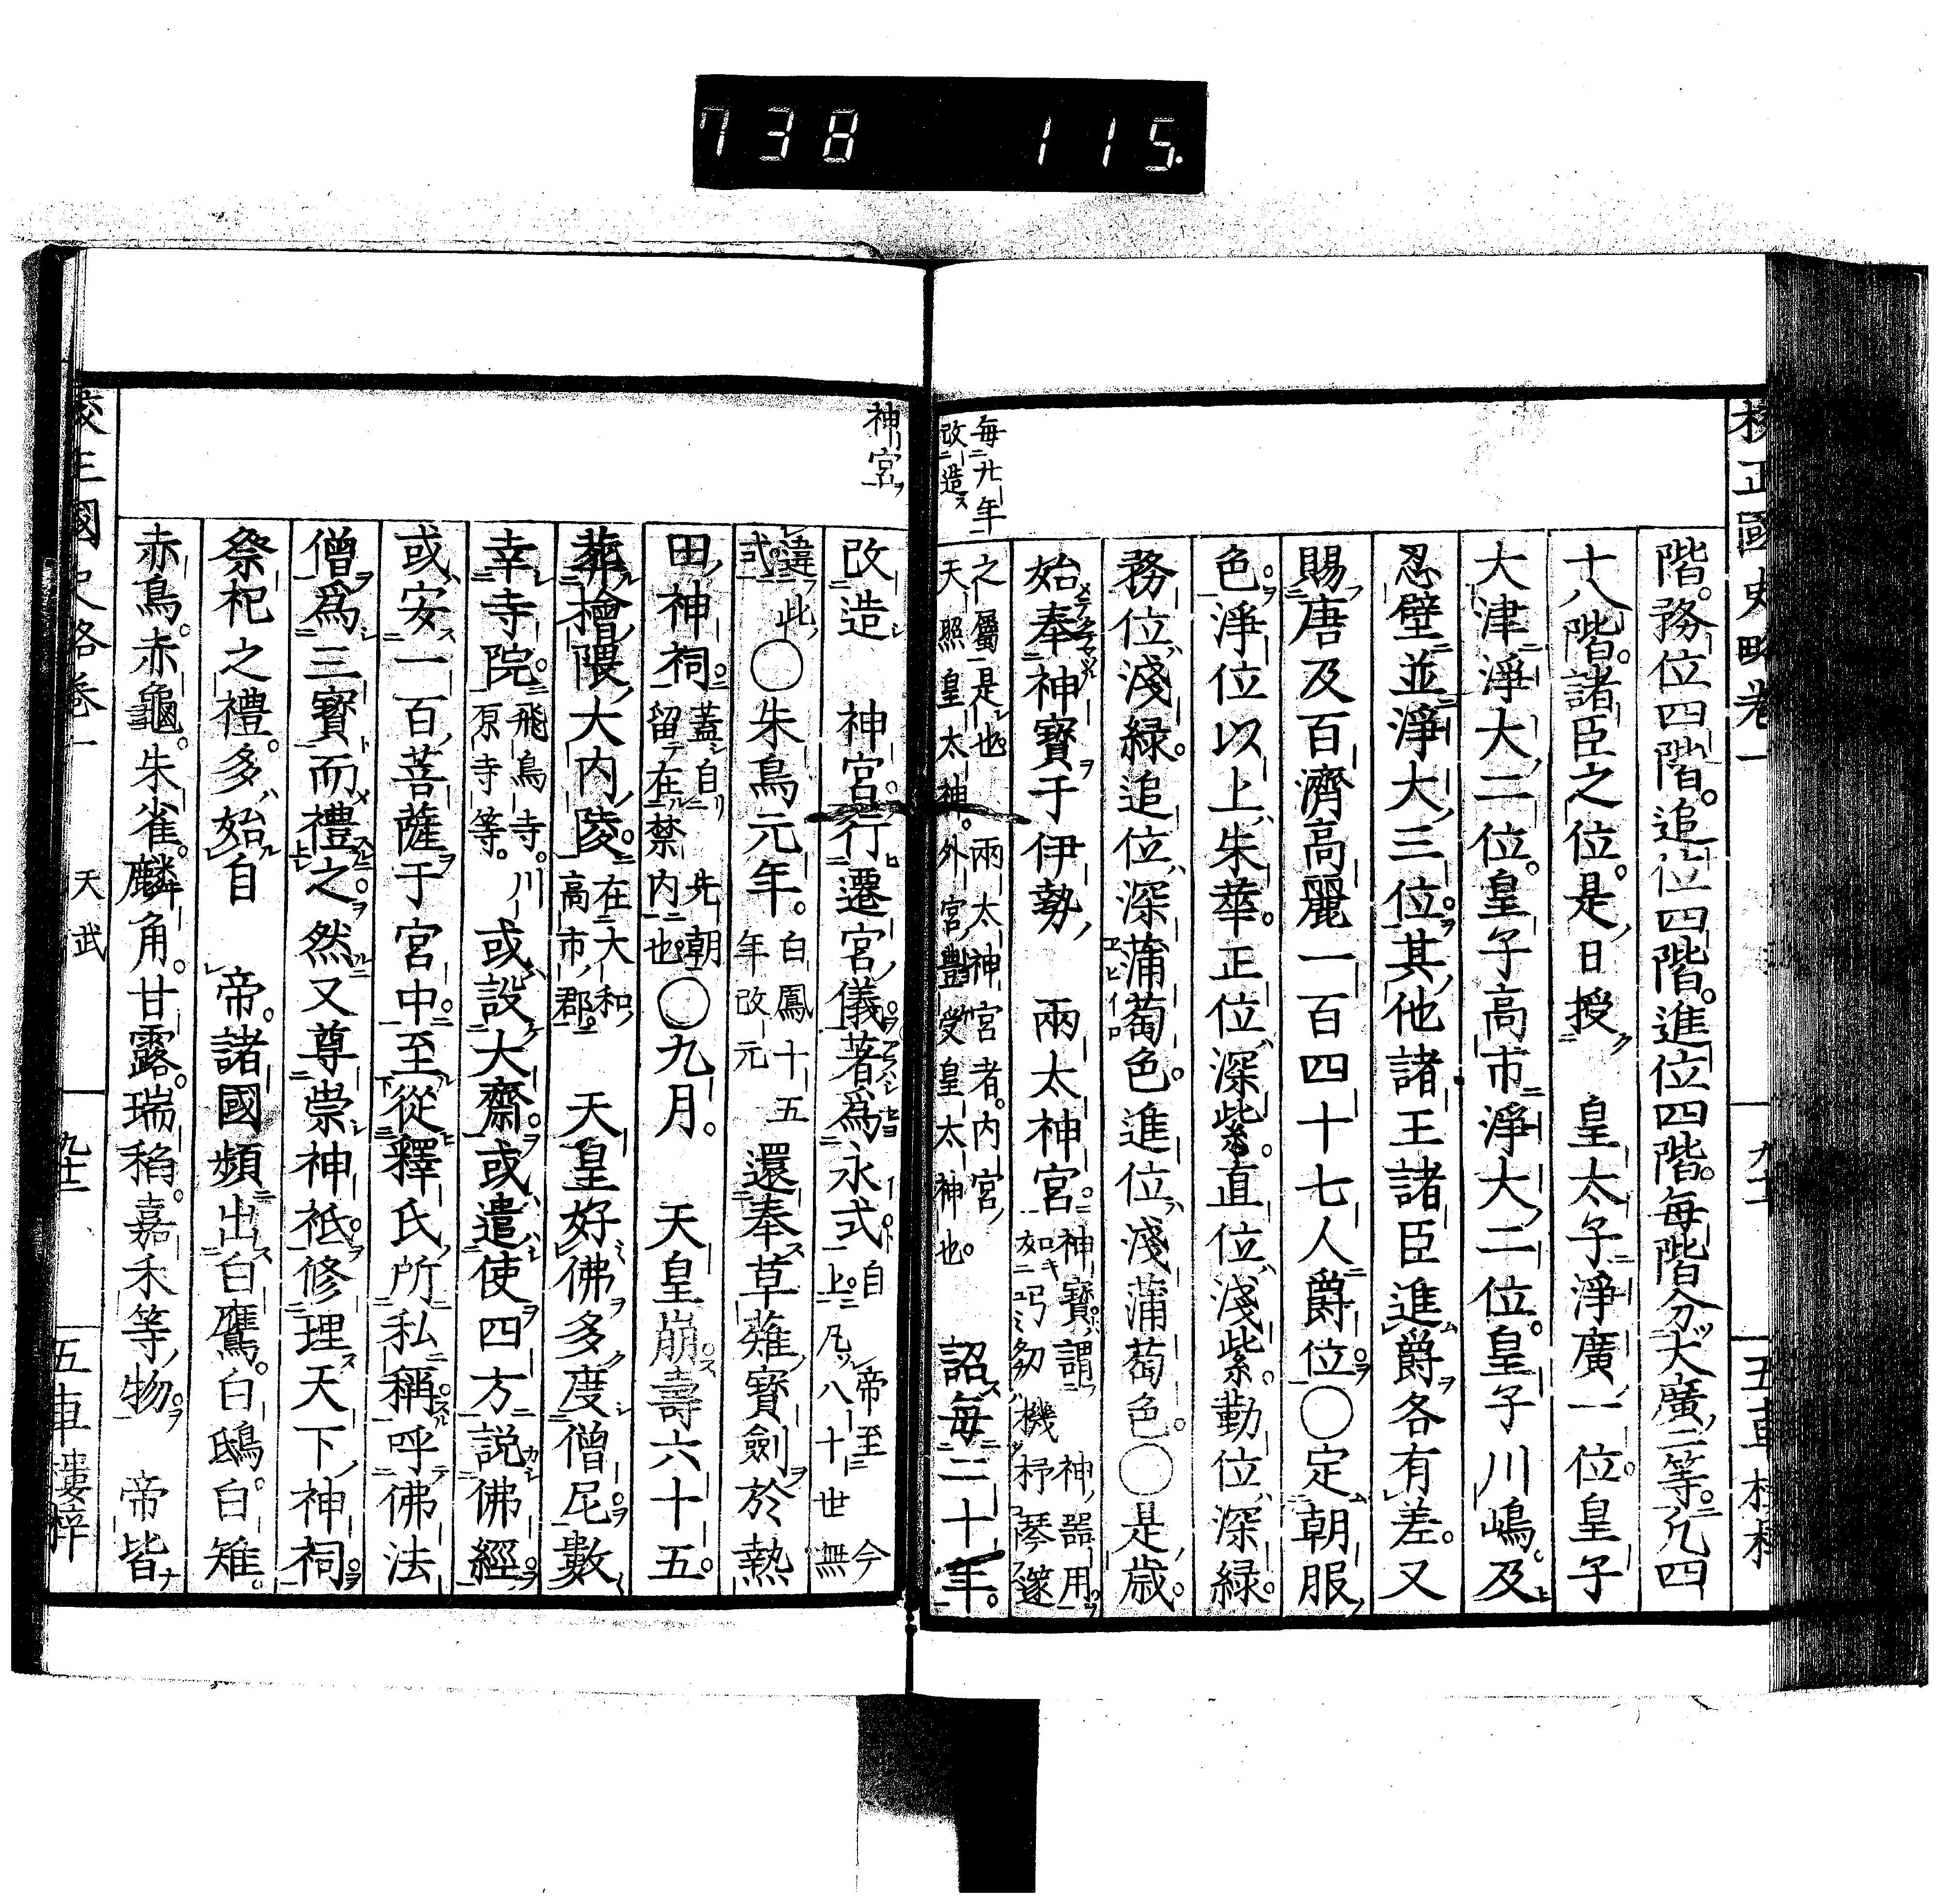 738 115.
校正國史略卷一 五車樓梓
階。務位四階。追位四階。進位四階。每階分大廣二等。凡四
十八階。諸臣之位。是日授 皇太子淨廣一位。皇子
大津淨大二位。皇子高市淨大二位。皇子川嶋。及
忍壁並淨大三位。其他諸王諸臣進爵各有差。又
賜唐及百濟高麗一百四十七人爵位○定朝服
色。淨位以上、朱華。正位、深紫。直位、淺紫。勤位、深綠。
務位、淺綠。追位、深蒲萄色。進位、淺蒲萄色。○是歲。
始奉神寶于伊勢 兩太神宮。神寶謂神器用如刀劒機杼琴篴
之屬是也 兩太神宮者。內宮天照皇太神。外宮豐受皇太神也。 詔每二十年。
每廿年改造
神宮
改造 神宮。行遷宮儀。著爲永式。自 帝至今上。凡八十世無
違此式。○朱鳥元年。白鳳十五年改元 還奉草薙寶劍於熱
田神祠。蓋自先朝留在禁內也○九月。 天皇崩壽六十五。
葬檜隈大內陵。在大和高市郡 天皇好佛多度僧尼。數
幸寺院。飛鳥寺。川原寺等。 或設大齋。或遣使四方說佛經。
或安一百菩薩于宮中。至從釋氏所私稱呼佛法
僧爲三寶而禮之。然又尊崇神祇。修理天下神祠。
祭祀之禮。多始自 帝。諸國頻出白鷹。白鴟。白雉。
赤鳥。赤龜。朱雀。麟角。甘露。瑞稻。嘉禾等物。 帝皆
天武 九十二 五車樓梓